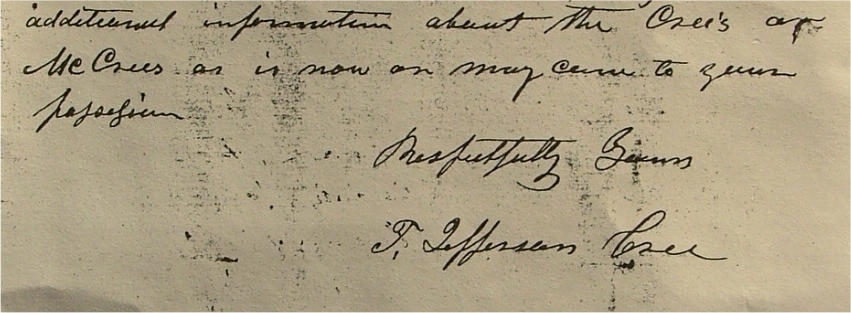 additional information about the Cree's or
McCrees as is now or may come to your
possession
Respectfully Yours
T. Jefferson Cree